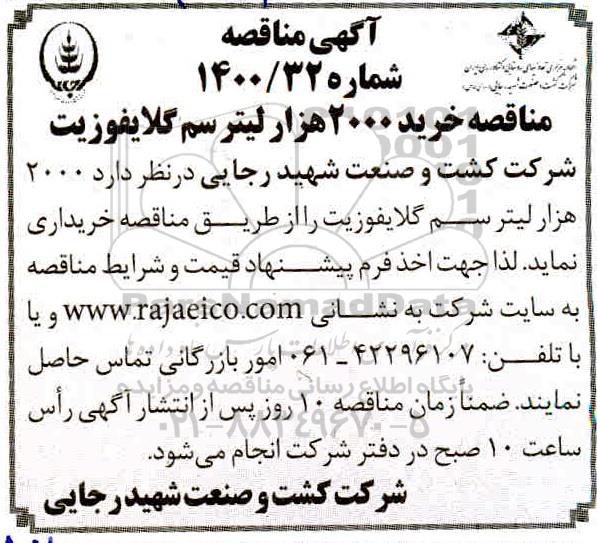 آگهی مناقصه
شماره ۱۴۰۰/۳۲
مناقصه خرید ۲۰۰۰ هزار لیتر سم گلایفوزیت
شرکت کشت و صنعت شهید رجایی درنظر دارد ۲۰۰۰
هزار لیتر سم گلایفوزیت را از طریق مناقصه خریداری
نماید. لذا جهت اخذ فرم پیشنهاد قیمت و شرایط مناقصه
به سایت شرکت به نشانی www.rajaeico.com و یا
با تلفن: ۴۲۲۹۶۱۰۷ ـ ۰۶۱ امور بازرگانی تماس حاصل
نمایند. ضمناً زمان مناقصه ۱۰ روز پس از انتشار آگهی رأس
ساعت ۱۰ صبح در دفتر شرکت انجام می‌شود.
شرکت کشت و صنعت شهید رجایی
ParsNamadData
پایگاه اطلاع رسانی مناقصه و مزایده
۰۲۱-۸۸۳۴۹۶۷۰-۵